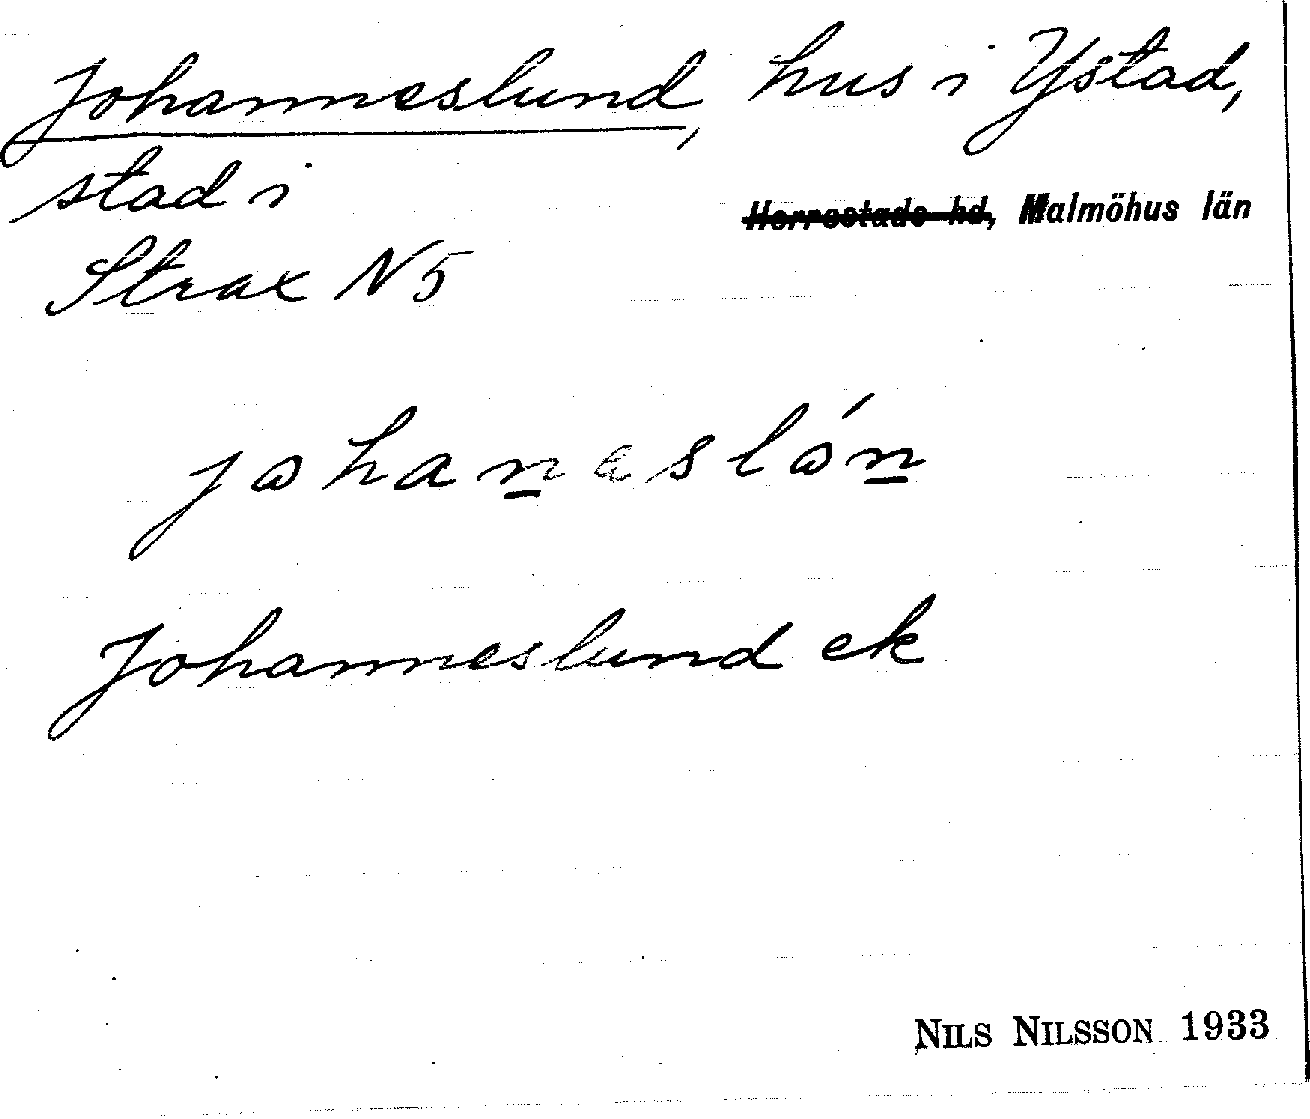 Johanneslund, hus i Ystad,
stad i
Herrestads hd, Malmöhus län
Strax N 5
johanəslón
Johanneslund ek
NILS NILSSON 1933